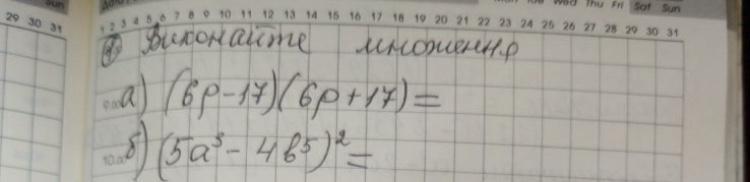 Mon Tue Wed Thu Fri Sat Sun
Sun
29 30 31
1 2 3 4 5 6 7 8 9 10 11 12 13 14 15 16 17 18 19 20 21 22 23 24 25 26 27 28 29 30 31
Виконайте множення
9.00 а) (6p-17)(6p+17)=
10.00 б) (5a³-4b⁵)²=